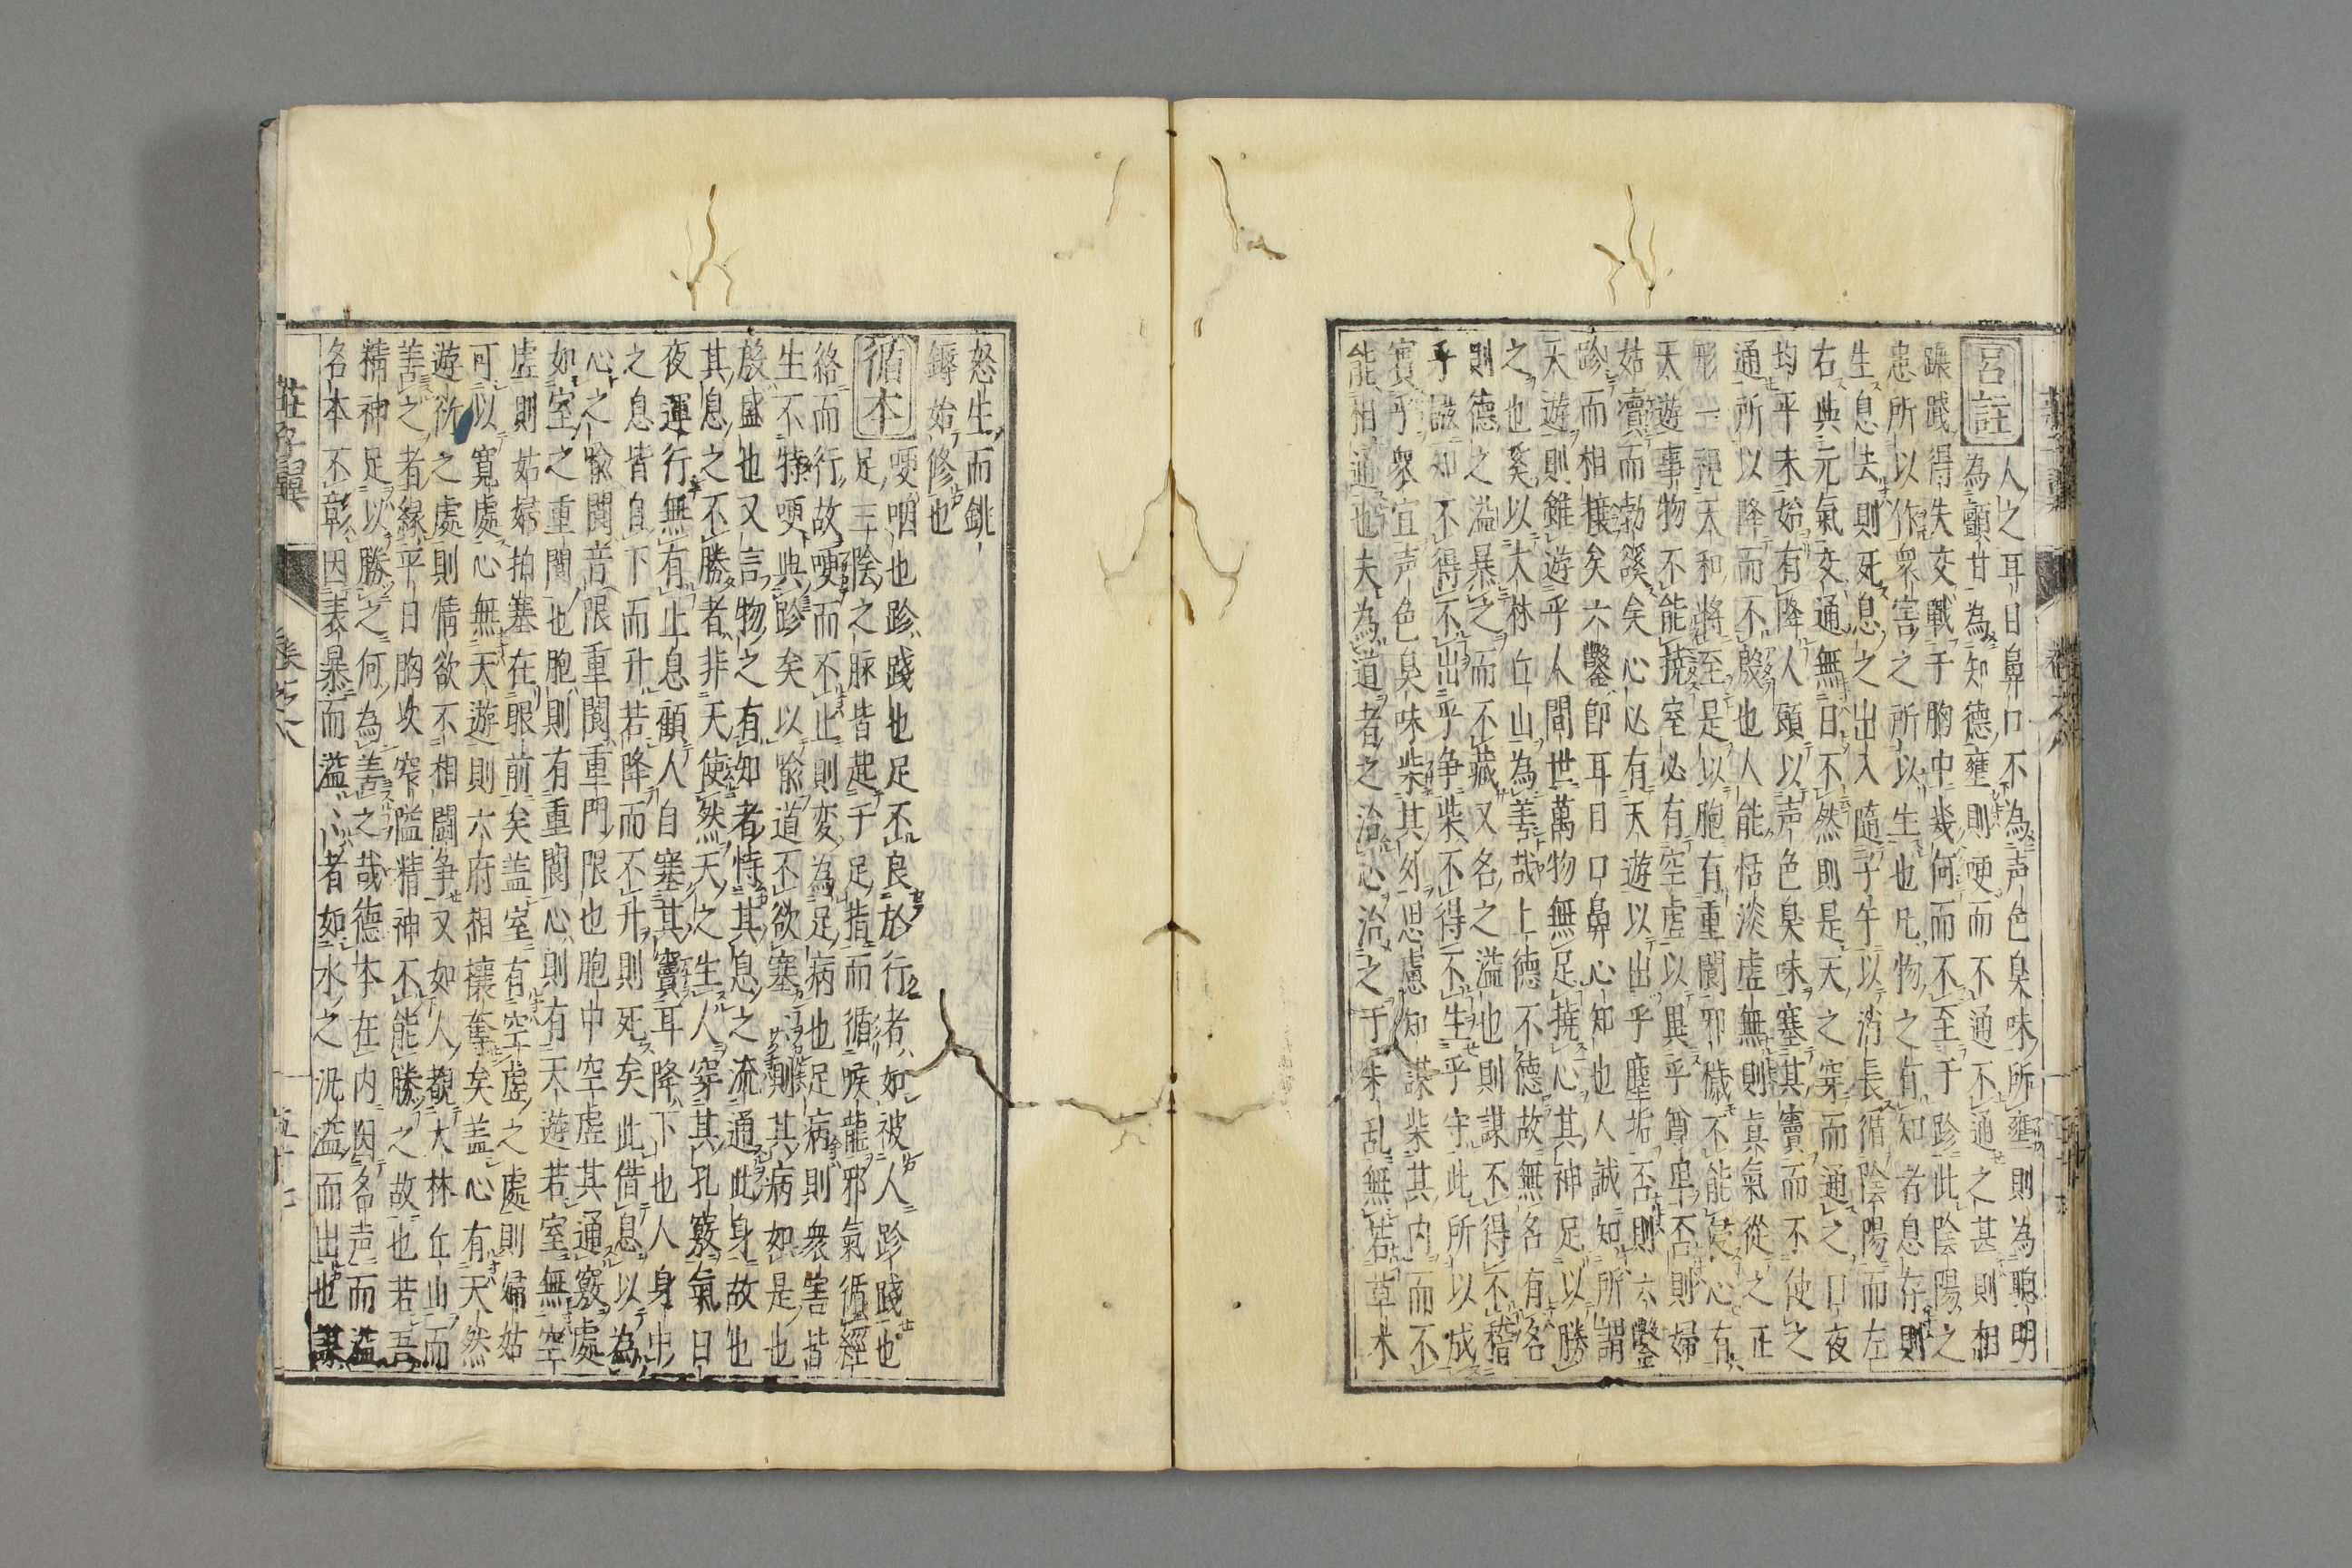 呂註 人之耳目鼻口不為声色臭味所壅則為聰明
為顫甘為知德壅則哽而不通不通之甚則相
蹍踐得失交戰于胸中幾何而不至于跈此陰陽之
患所以作衆害之所以生也凡物之有知者息存則
生息去則死息之出入隨子午以消長循陰陽而左
右與元氣交通無日不然則是天之穿而通之日夜
均平未始有降人顧以声色臭味塞其竇而不使之
通所以降而不殷也人能恬淡虛無則真氣從之正
形一視天和將至是以胞有重閬邪穢不能侵心有
天遊事物不能撓室必有空虛以異乎尊卑否則婦
姑竇而勃谿矣心必有天遊以出乎塵垢否則六鑿
跈而相攘矣六鑿即耳目口鼻心知也人誠知所謂
天遊則雖遊乎人間世萬物無足撓心其神足以勝
之也奚以大林丘山為善哉上德不德故無名有名
則德之溢暴之而不藏又名之溢也則謀不得不稽
乎誸知不得不出乎争柴不得不生乎守此所以成
實乎衆宜声色臭味柴其外思慮知謀柴其内而不
能相通也夫為道者之治心治之于未乱無若草木
怒生而銚
鎒始修也
循本 哽咽也跈踐也足不良於行者如被人跈踐也
足三陰之脉皆起于足指而循喉嚨邪氣循經
絡而行故哽而不止則変為足病也足病則衆害皆
生不特哽與跈矣以喻道不欲塞塞則其病如是也
殷盛也又言物之有知者恃其息之流通此身故也
其息之不勝者非天使然天之生人穿其孔竅氣日
夜運行無有止息顧人自塞其竇耳降下也人身中
之息皆自下而升若降而不升則死矣此借息以為
心之喻閬音限重閬重門限也胞中空虛其通竅處
如室之重閬也胞則有重閬心則有天遊若室無空
虛則姑婦拍塞在眼前矣盖室有空虛之處則婦姑
可以寬處心無天遊則六府相攘奪矣盖心有天然
遊衍之處則情欲不相鬪争又如人覩大林丘山而
善之者緣平日胸次窄隘精神不能勝之故也若吾
精神足以勝之何為善之哉德本在内因名声而溢
名本不彰因表暴而溢溢者如水之汎溢而出也謀
莊子翼 卷之六 五十七